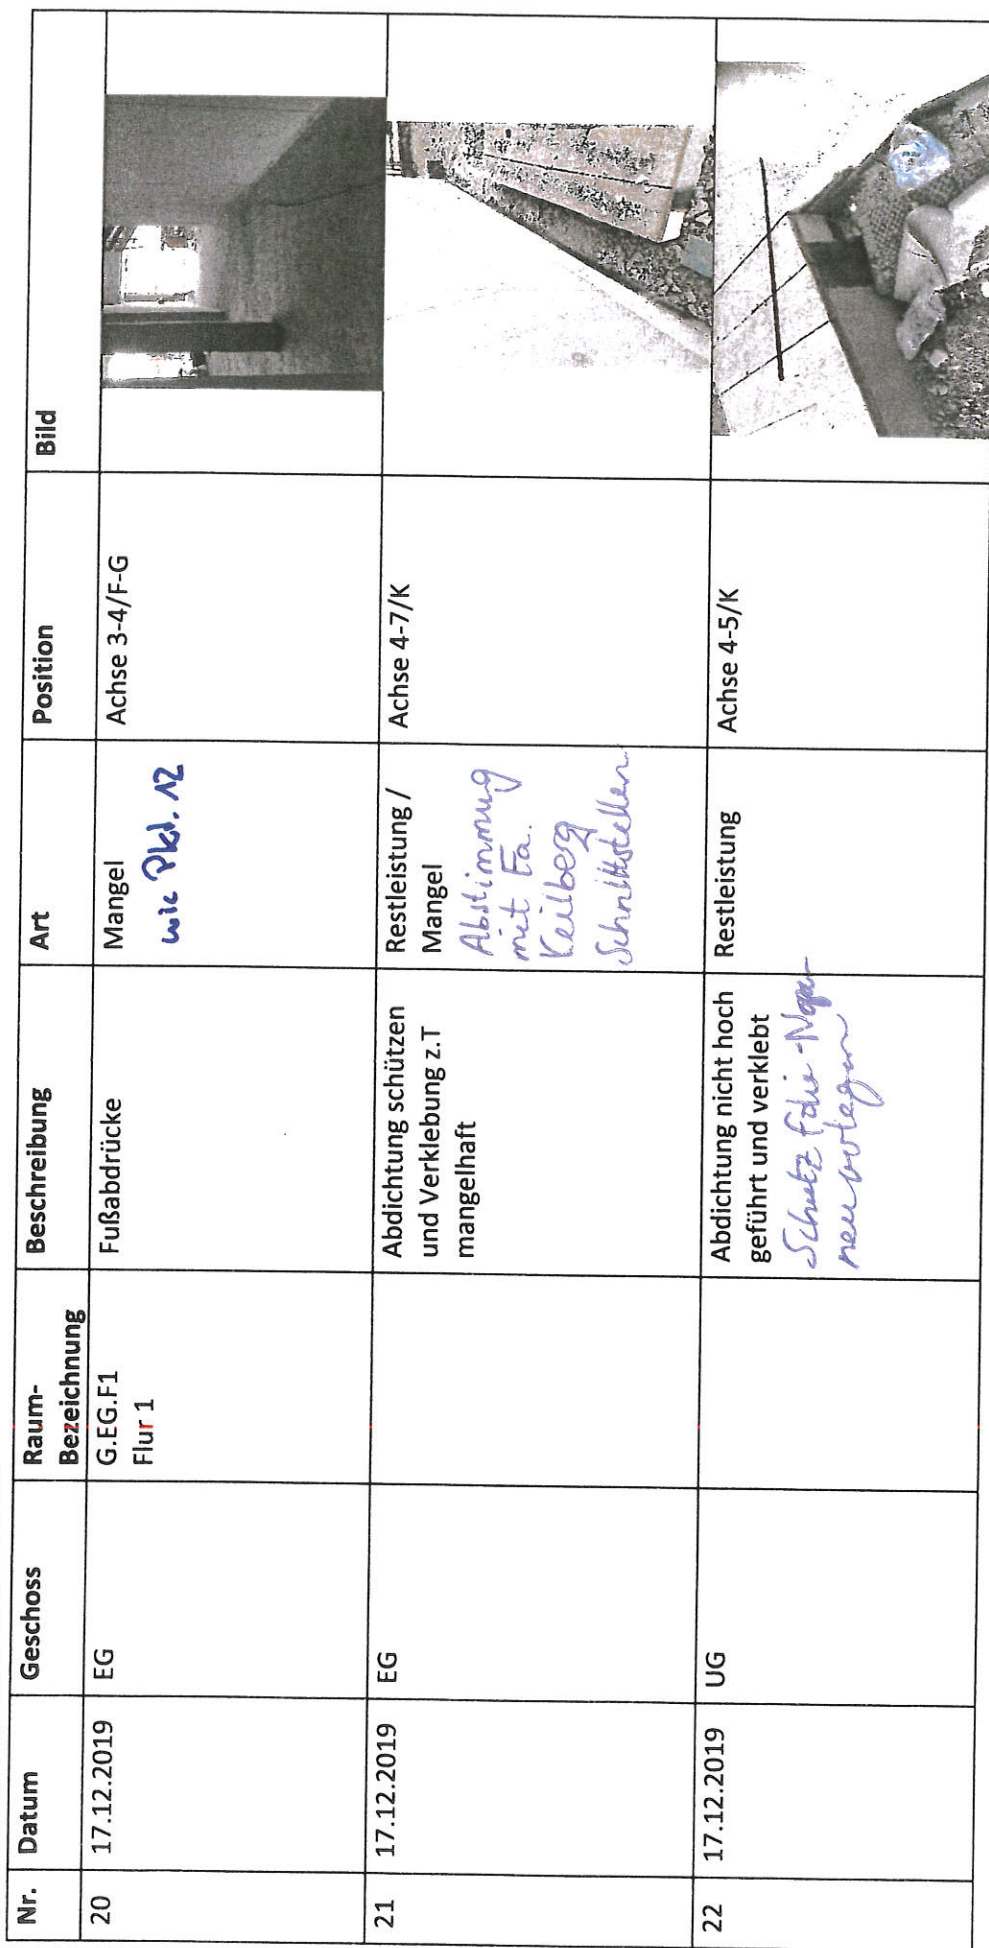 Nr.
Datum
Geschoss
Raum-
Bezeichnung
Beschreibung
Art
Position
Bild
20
17.12.2019
EG
G.EG.F1
Flur 1
Fußabdrücke
Mangel
wie Pkt. 12
Achse 3-4/F-G
21
17.12.2019
EG
Abdichtung schützen
und Verklebung z.T
mangelhaft
Restleistung /
Mangel
Abstimmung
mit Fa.
Keilberg
Schnittstellen
Achse 4-7/K
22
17.12.2019
UG
Abdichtung nicht hoch
geführt und verklebt
Schutz Folie
Restleistung
Achse 4-5/K